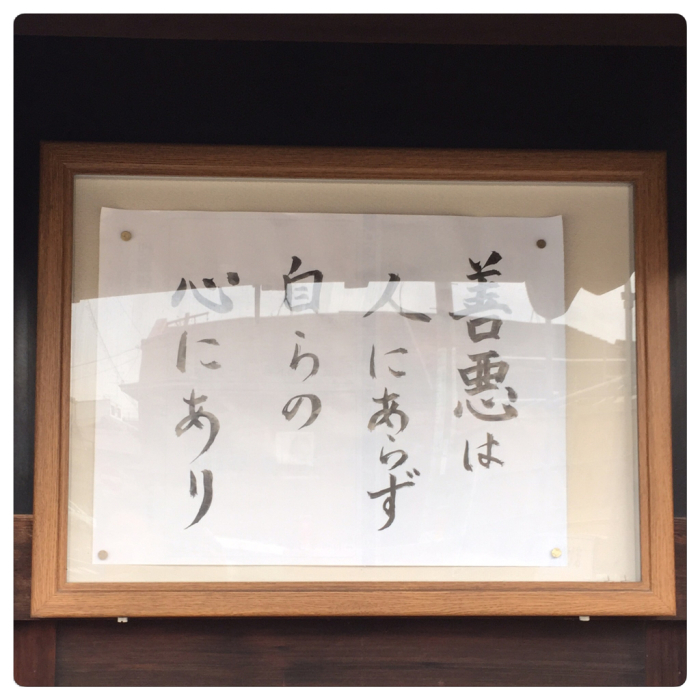 善悪は
人にあらず
自らの
心にあり